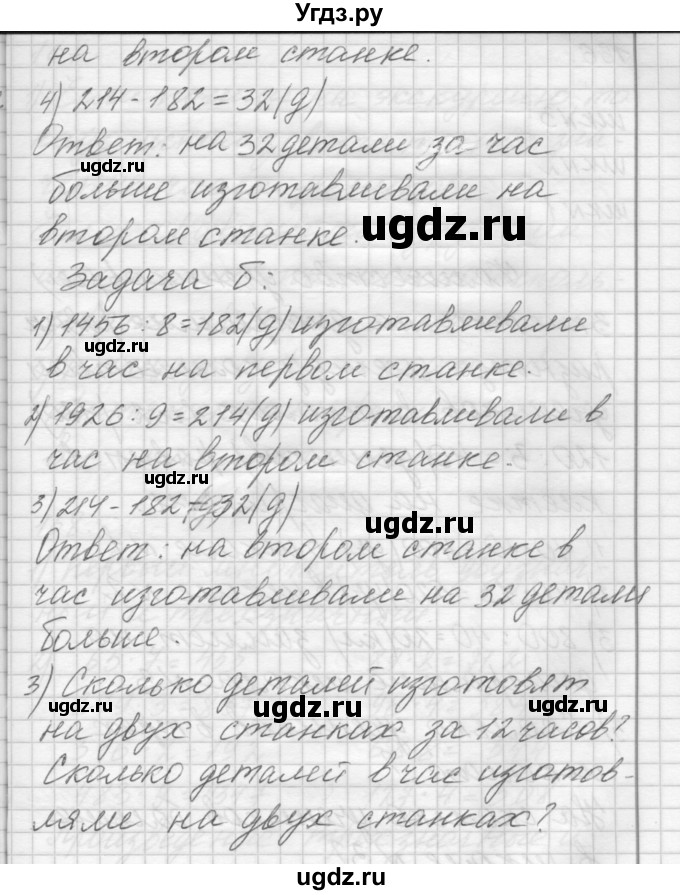 Угдз.ру
на втором станке.
4) 214-182=32(д)
Ответ: на 32 детали за час
больше изготавливали на
втором станке.
Задача б:
1) 1456:8=182(д) изготавливали
в час на первом станке.
2) 1926:9=214(д) изготавливали в
час на втором станке.
3) 214-182=32(д)
Ответ: на втором станке в
час изготавливали на 32 детали
больше.
3) Сколько деталей изготовят
на двух станках за 12 часов?
Сколько деталей в час изготов-
ляли на двух станках?
ugdz.ru
ugdz.ru
ugdz.ru
ugdz.ru
ugdz.ru
ugdz.ru
ugdz.ru
ugdz.ru
ugdz.ru
ugdz.ru
ugdz.ru